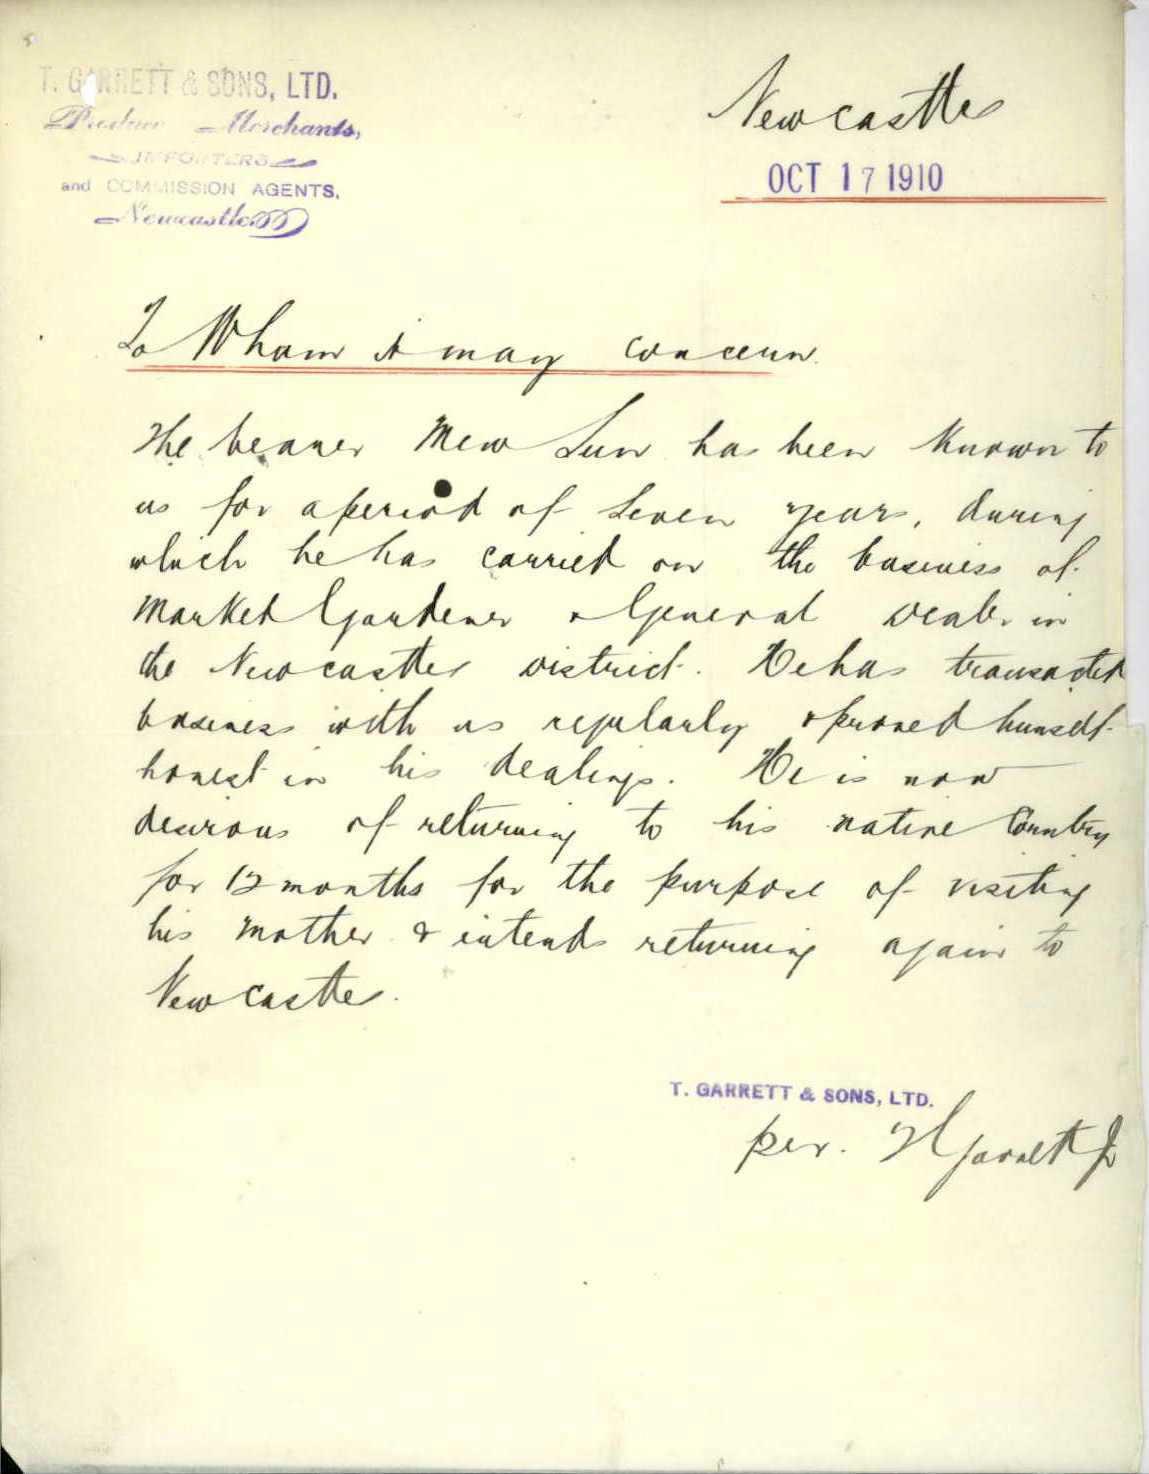 T. GARRETT & SONS, LTD.
Produce Merchants,
IMPORTERS
and COMMISSION AGENTS,
Newcastle
Newcastle
OCT 17 1910
To Whom it may concern.
The bearer Mew Sun has been known to
us for a period of seven years, during
which he has carried on the business of
Market Gardener & General Dealer in
the Newcastle district. He has transacted
business with us regularly & proved himself
honest in his dealings. He is now
desirous of returning to his native Country
for 12 months for the purpose of visiting
his mother & intends returning again to
Newcastle.
T. GARRETT & SONS, LTD.
per. Garrett Jr